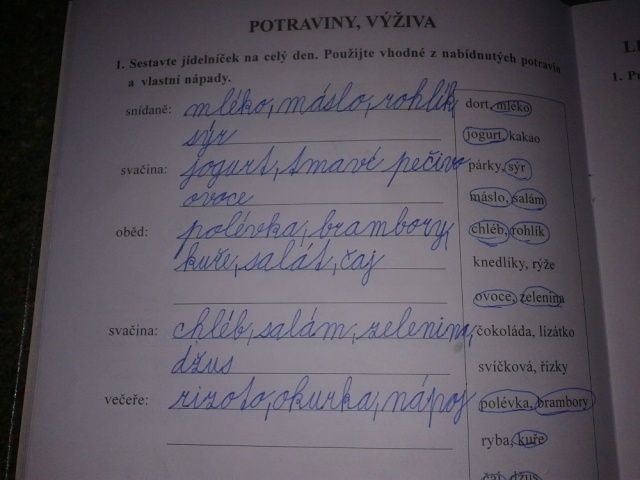 POTRAVINY, VÝŽIVA
1. Sestavte jídelníček na celý den. Použijte vhodné z nabídnutých potravin
a vlastní nápady.
snídaně: mléko, máslo, rohlík,
sýr
svačina: jogurt, tmavé pečivo
ovoce
oběd: polévka, brambory,
kuře, salát, čaj
svačina: chléb, salám, zelenina,
džus
večeře: rizoto, okurka, nápoj
dort, mléko
jogurt, kakao
párky, sýr
máslo, salám
chléb, rohlík
knedlíky, rýže
ovoce, zelenina
čokoláda, lízátko
svíčková, řízky
polévka, brambory
ryba, kuře
čaj, džus
1.